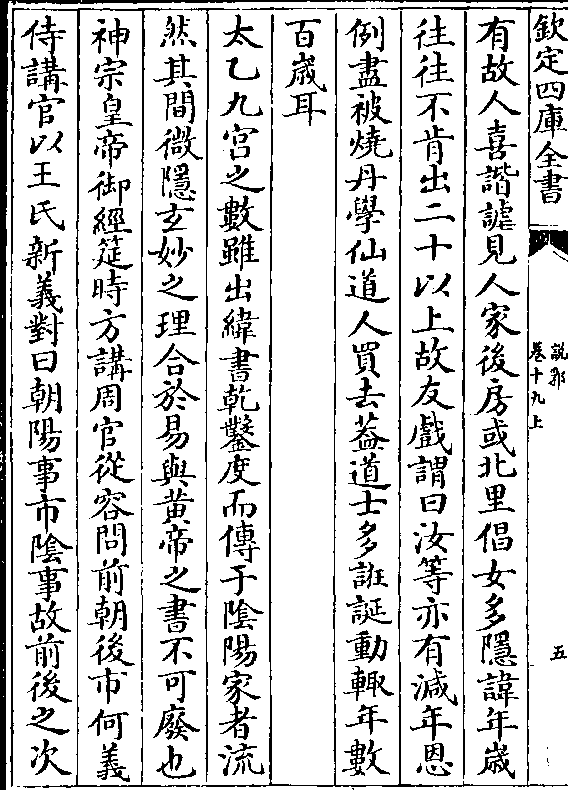 欽定四庫全書
說郛
卷十九上
五
有故人喜諧謔見人家後房或北里倡女多隱諱年歲
往往不肯出二十以上故友戲謂曰汝等亦有減年恩
例盡被燒丹學仙道人買去葢道士多誑誕動輙年數
百歲耳
太乙九宫之數雖出緯書乾鑿度而傳于陰陽家者流
然其間微隱玄妙之理合於易與黄帝之書不可廢也
神宗皇帝御經筵時方講周官從容問前朝後市何義
侍講官以王氏新義對曰朝陽事市陰事故前後之次